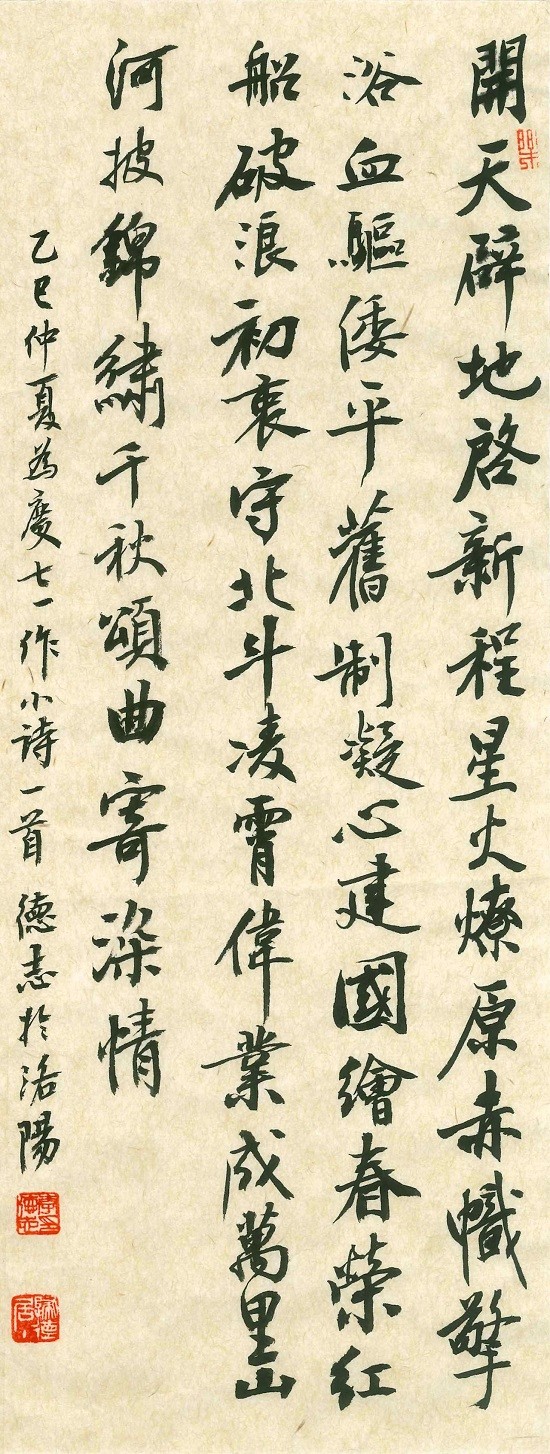 開天辟地啓新程星火燎原赤幟擎
浴血驅倭平舊制凝心建國繪春榮紅
船破浪初衷守北斗凌霄偉業成萬里山
河披錦繡千秋頌曲寄深情
乙巳仲夏為慶七一作小詩一首 德志於洛陽